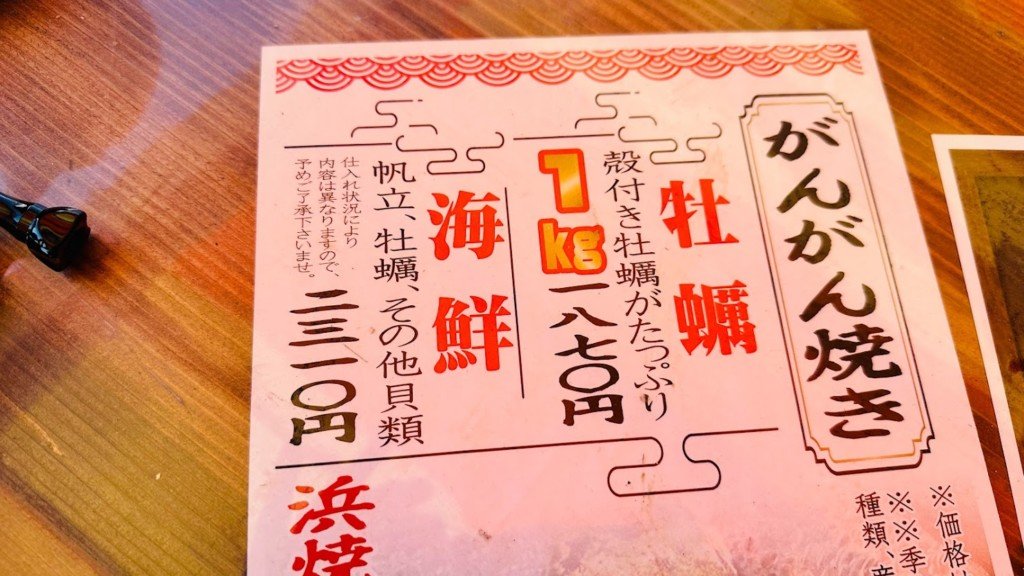 がんがん焼き
牡蠣
殻付き牡蠣がたっぷり
1kg 一八七〇円
海鮮
帆立、牡蠣、その他貝類
仕入れ状況により
内容は異なりますので、
予めご了承下さいませ。
二三一〇円
浜焼
※価格
※※季
種類、産